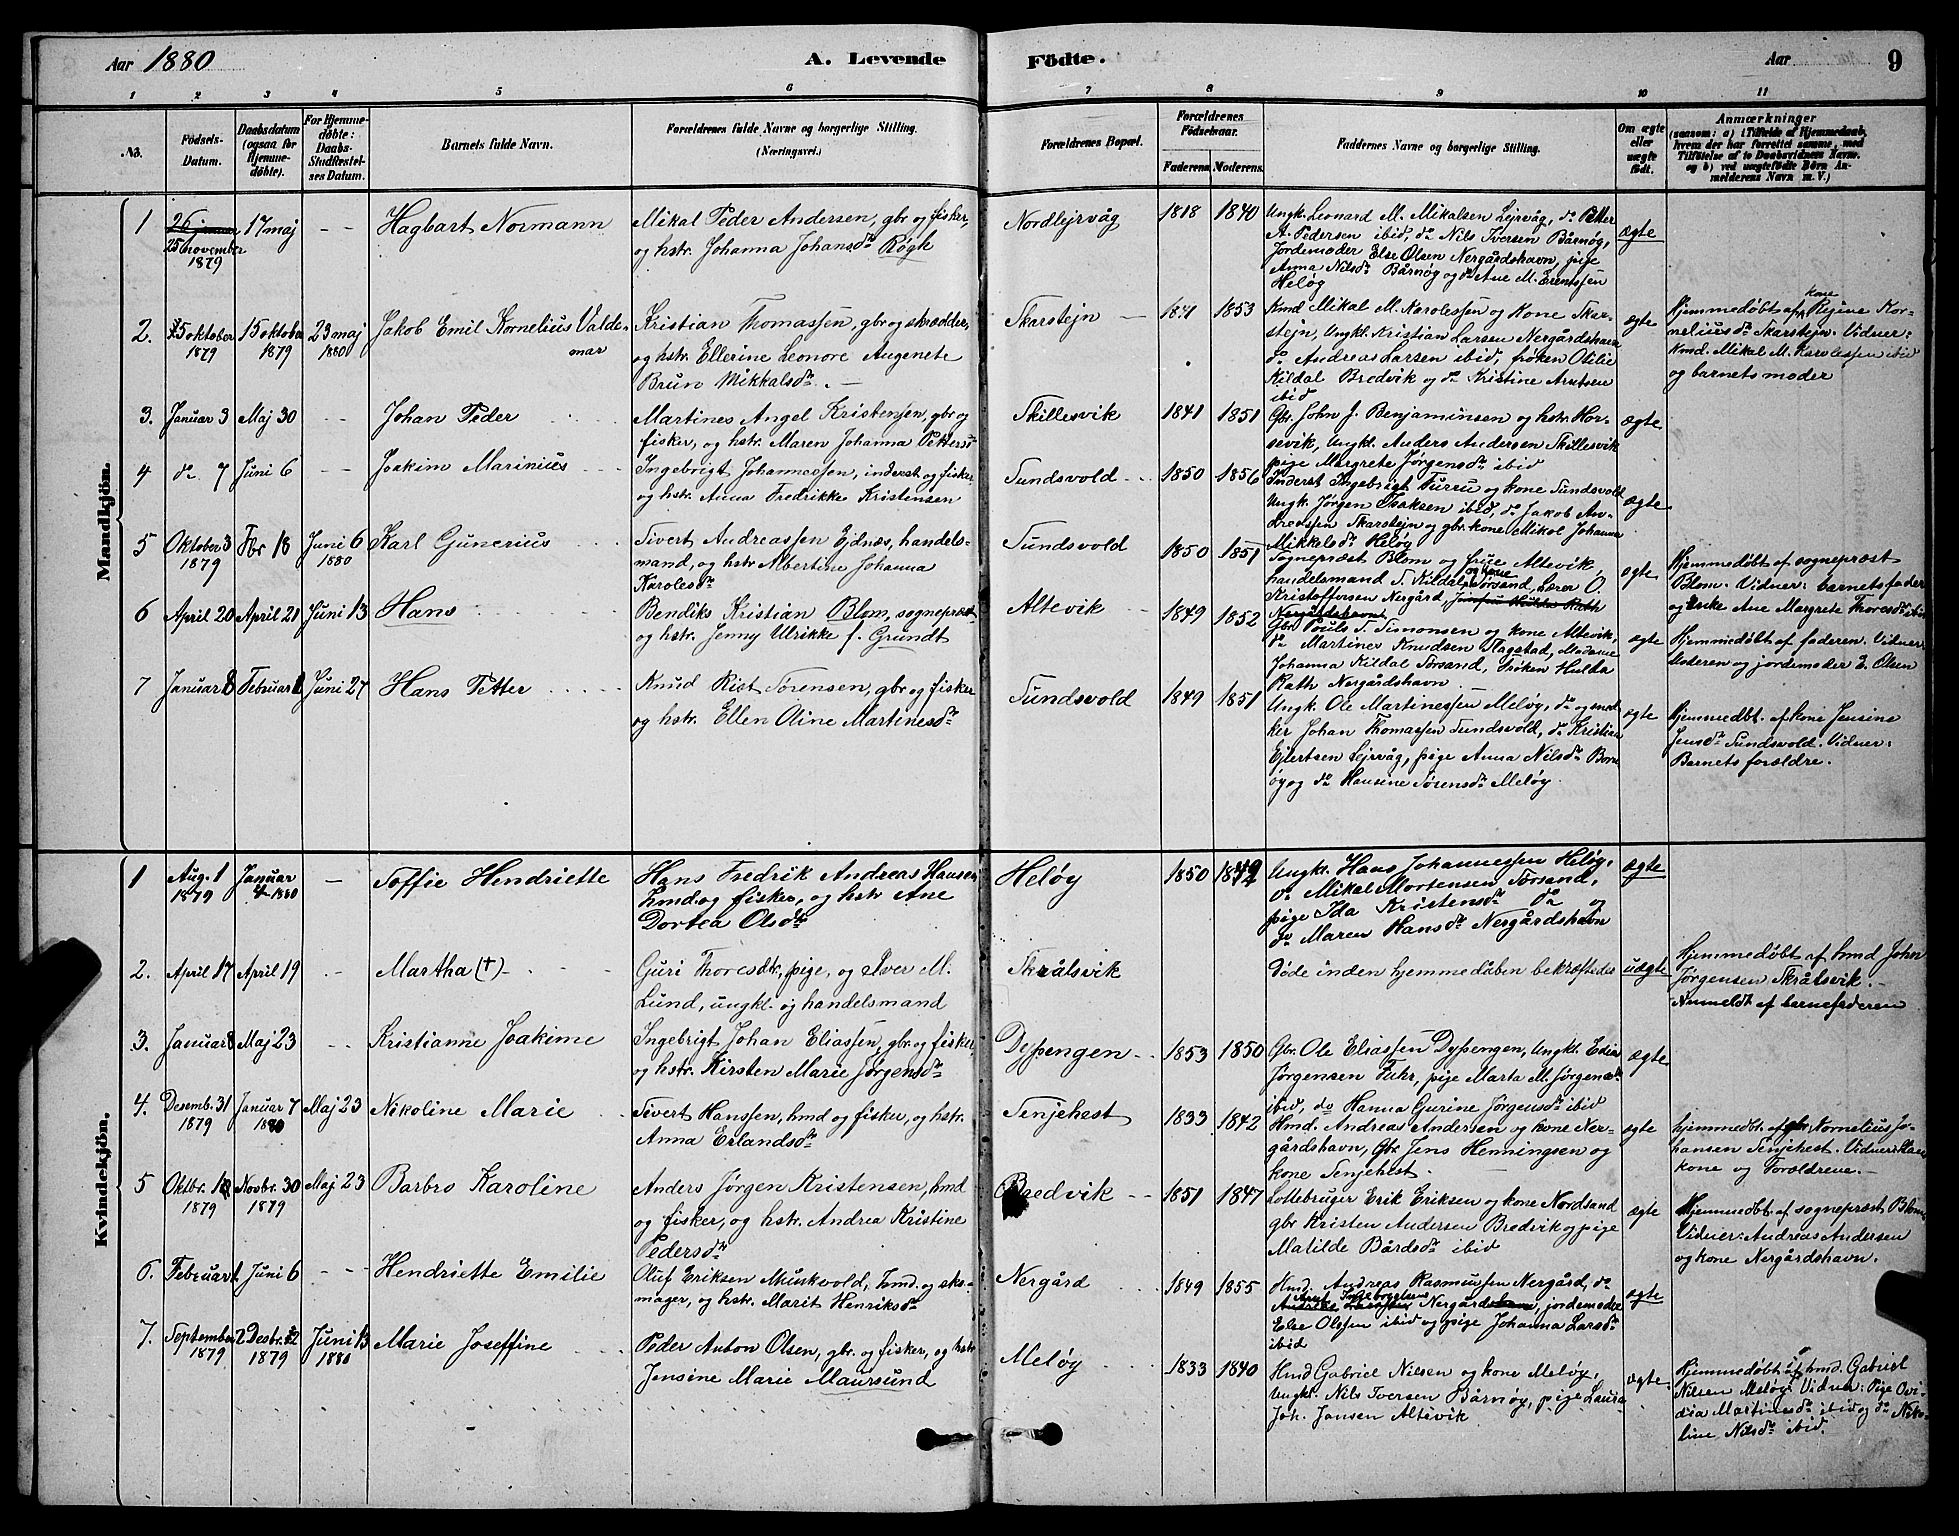 Aar 1880
A. Levende
Födte.
Aar
9
1 2 3 4 5 6 7 8 9 10 11
No.
Födsels-Datum.
Daabsdatum (ogsaa för Hjemme-döbte).
For Hjemme-döbte: Daabs-Stadfæstel-ses Datum.
Barnets fulde Navn.
Forældrenes fulde Navne og borgerlige Stilling. (Næringsvei.)
Forældrenes Bopæl.
Forældrenes Födselsaar.
Faderens Moderens
Faddernes Navne og borgerlige Stilling.
Om ægte eller uægte födt.
Anmærkninger
(saasom: a) i Tilfælde af Hjemmedaab, hvem der har forrettet samme, med Tilföielse af to Daabsvidners Navne, og b) ved uægtefödte Börn An-melderens Navn m. V.)
Mandkjön.
1 26 januar 25 november 1879 17 maj - - Hagbart Normann
Mikal Peder Andersen, gbr og fisker,
og hstr. Johanna Johansdr Røgh
Nordlejrvåg 1818 1840
Ungk. Leonard M. Mikalsen Lejrvåg, do Petter
A. Pedersen ibid, do Nils Iversen Bårnøg,
Jordemoder Else Olsen Nergårdshavn, pige
Anna Nilsdr Bårnøg og do Ane M. Erentssen
Heløg
ægte
2. 15 oktober 1879 15 oktober 1879 23 maj 1880 Jakob Emil Kornelius Valde-
mar
Kristian Thomassen, gbr og skrædder,
og hstr. Ellerine Leonore Augenete
Brun Mikkalsdr. -
Skarstejn 1841 1853
Kmd Mikal M. Karolessen og Kone Skar-
stejn, Ungkl. Kristian Larsen Nergårdshavn
do Andreas Larsen ibid, frøken Otilie
Kildal Bredvik og do Kristine Arntsen
ibid
ægte
Hjemmedøbt af kone Rejine Kor-
neliusdr Skarstejn. Vidner:
Kmd. Mikal M. Karolessen ibid
og barnets moder
3. Januar 3 Maj 30 - - Johan Peder
Martines Angel Kristensen, gbr og
fisker, og hstr. Maren Johanna Pettersdr
Skillesvik 1841 1851
Gbr. John J. Benjaminsen og hstr. Hor-
sevik, Ungkl. Anders Andersen Skillesvik
pige Margrete Jørgensdr ibid
ægte
4 do 7 Juni 6 - - Joakim Marinius
Ingebrigt Johannessen, inderst og fisker
og hstr. Anna Fredrikke Kristensen
Sundsvold 1850 1856
Inderst Ingebrigt Furru og kone Sundsvold
Ungk. Jørgen Isaksen ibid, do Jakob An-
dreassen Skarstejn og gbr. kone Mikol Johanna
Mikkelsdr Heløg
ægte
5 Oktober 3 1879 Fbr 18 Juni 6 1880 Karl Gunerius
Sivert Andreassen Ejdnæs, handels-
mand, og hstr Albertine Johanna
Karolesdr
Sundsvold 1850 1851
Sogneprest Blom og frue Altevik,
handelsmand S. Kildal og kone Sørsand, Lærer O.
Kristoffersen Nergård,
Nergårdshavn
ægte
Hjemmedøbt af sogneprest
Blom. Vidner: barnets fader
og enke Ane Margrete Thoresdr ibid
6 April 20 April 21 Juni 13 Hans
Bendiks Kristian Blom, sogneprest,
og hstr. Jenny Ulrikke f. Grundt
Altevik 1849 1852
Gbr. Pouls S. Simonsen og kone Altevik,
do Martines Knudsen Flagstad, Madame
Johanna Kildal Sørsand, Frøken Hulda
Rath Nergårdshavn
ægte
Hjemmedøbt af faderen. Vidner:
Moderen og jordemoder E. Olsen
7 Januar 8 Februar 1 Juni 27 Hans Petter
Knud Rist Sørensen, gbr og fisker
og hstr. Ellen Oline Martinesdr
Sundsvold 1849 1851
Ungk. Ole Martinessen Meløg, do og
Johan Thomassen Sundsvold, do Kristian
Ejlertsen Lejrvåg, pige Anna Nilsdr Born
øg og do Hansine Sørensdr Meløg.
ægte
Hjemmedbt. af kone Jensine
Jensdr Sundsvold. Vidner:
Barnets forældre.
Kvindekjön.
1 Aug. 1 1879 Januar 4 1880 - Soffie Hendriette
Hans Fredrik Andreas Hansen
hmd og fisker, og hstr Ane
Dortea Olsdr
Heløy 1850 1842
Ungk. Hans Johannessen Heløg,
do Mikal Mortensen Sørsand,
pige Ida Kristensdr do og
do Maren Hansdr Nergårdshavn
ægte
2. April 17 April 19 - - Martha (†)
Guri Thoresdtr, pige, og Iver M.
Lund, ungkl. og handelsmand
Skrålsvik
Døde inden hjemmedåben bekræftedes
uægte
Hjemmedøbt af hmd John
Jørgensen Skrålsvik. -
Anmeldt af barnefaderen
3. Januar 8 Maj 23 - - Kristianne Joakime
Ingebrigt Johan Eliassen, gbr og fisker,
og hstr. Kirsten Marie Jørgensdr
Dyssengen 1853 1850
Gbr. Ole Eliassen Dyssengen, Ungkl.
Jørgensen Fuhr, pige Marta M. Jørgensdr
ibid, do Hanna Gurine Jørgensdr ibid
ægte
4. Desemb. 31 1879 Januar 7 1880 Maj 23 Nikoline Marie
Sivert Hanssen, hmd og fisker, og hstr.
Anna Erlandsdr
Senjehest 1833 1842
Hmd. Andreas Andersen og kone Ner-
gårdshavn, Gbr. Jens Henningsen og
kone Senjehest.
ægte
hjemmedbt. af gbr. Kornelius Jo-
hansen Senjehest. Vidner:
kone og Forældrene. -
5 Oktbr. 10 1879 Novbr. 30 1879 Maj 23 Barbro Karoline
Anders Jørgen Kristensen, hmd
og fisker, og hstr. Andrea Kristine
Pedersdr
Bredvik 1851 1847
Lottebruger Erik Eriksen og kone Nordsand
gbr Kristen Andersen Bredvik og pige
Matilde Bårdsdr ibid
ægte
Hjemmedbt. af sogneprest Blom
Vidner: Andreas Andersen
og kone Nergårdshavn.
6. Februar 1. Juni 6 - - Hendriette Emilie
Oluf Eriksen Munkvold, hmd. og sko-
mager, og hstr. Marit Henriksdr
Nergård 1849 1855
Hmd. Andreas Rasmussen Nergård, do
Nergård, jordemoder
Else Olssen ibid og pige Johanna Larsdr
ibid
ægte
7. September 2 1879 Desbr. 12 1879 Juni 13 1880 Marie Joseffine
Peder Anton Olsen, gbr. og fisker, og hstr
Jensine Marie Maursund
Meløy 1833 1840
Hmd Gabriel Nilsen og kone Meløy,
Ungkl. Nils Iversen Bårnøg, pige Laura
Joh. Jansen Altevik
ægte
Hjemmedøbt af hmd. Gabriel
Nilsen Meløg. Vidner: Pige Ovi-
dia Martinesdr ibid og do Niko-
line Nilsdr ibid.